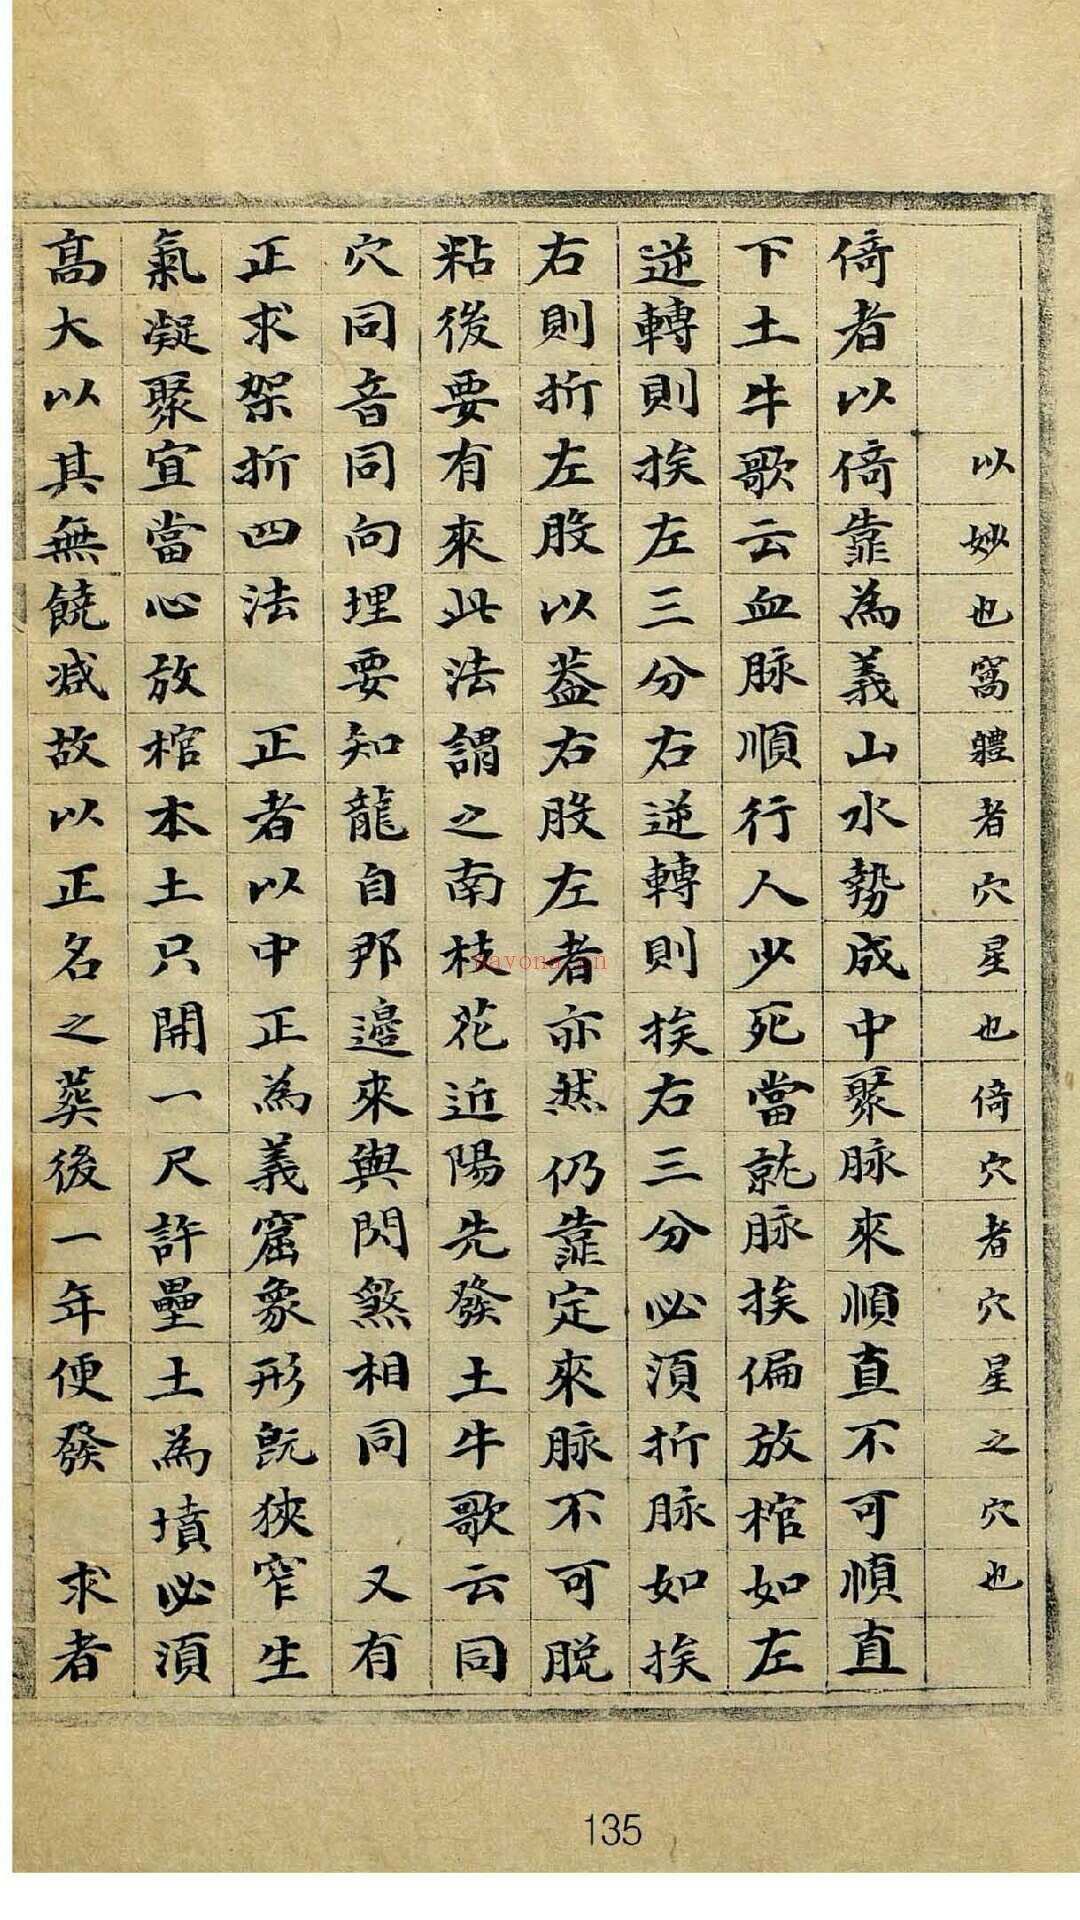 以妙也窩體者穴星也倚穴者穴星之穴也
倚者以倚靠為義山水勢成中聚脉來順直不可順直
下土牛歌云血脉順行人少死當就脉挨偏放棺如左
逆轉則挨左三分右逆轉則挨右三分必須折脉如挨
右則折左股以葢右股左者亦然仍靠定來脉不可脱
粘後要有來此法謂之南枝花近陽先發土牛歌云同
穴同音同向埋要知龍自那邊來與閃煞相同 又有
正求架折四法 正者以中正為義窟象形旣狹窄生
氣凝聚宜當心放棺本土只開一尺許壘土為墳必須
髙大以其無饒减故以正名之葬後一年便發 求者
135